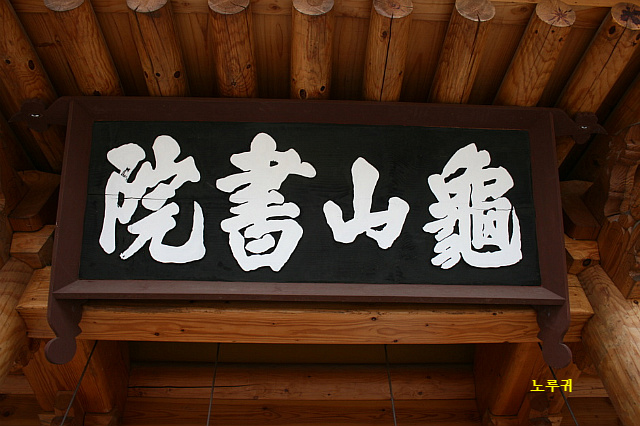 龜山書院
노루귀